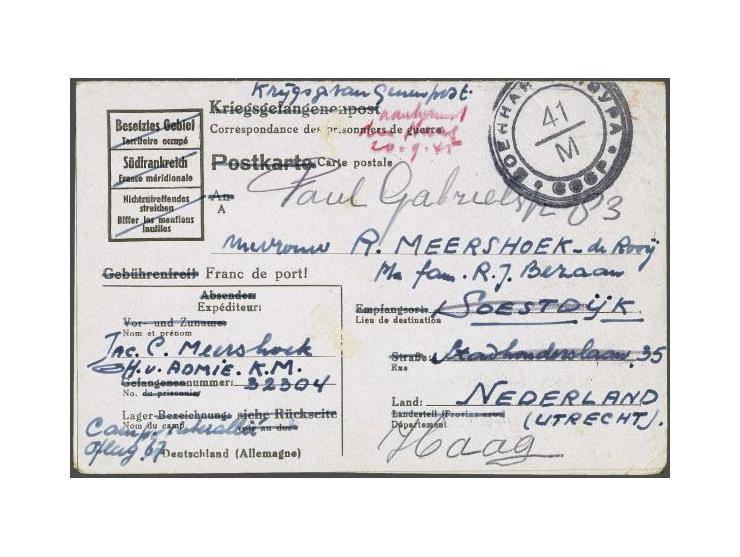 Krijgsgevangenenpost.
Kriegsgefangenenpost
Correspondance des prisonniers de guerre
20-9-45
Postkarte Carte postale
Besetztes Gebiet
Territoire occupé
Südfrankreich
France méridionale
Nichtzutreffendes
streichen
Biffer les mentions
inutiles
ВОЕННАЯ ЦЕНЗУРА
41
M
СССР
An
A
Paul Gabriëlstr 83
Mevrouw R. MEERSHOEK-de Rooij
p/a fam. R.J. Bezaan
Gebührenfrei! Franc de port!
Absender:
Expéditeur:
Vor- und Zuname:
Nom et prénom
Jac. C. Meershoek
O.H. v. ADMIE. K.M.
Gefangenennummer: 32304
No. du prisonnier
Lager-Bezeichnung: siehe Rückseite
Nom du camp voir au dos
Camp
Oflag 67 Deutschland (Allemagne)
Empfangsort: SOESTDIJK
Lieu de destination
Straße: Stadhouderslaan 35
Rue
Land: NEDERLAND
Landesteil (Provinz usw.) (UTRECHT).
Département
Haag